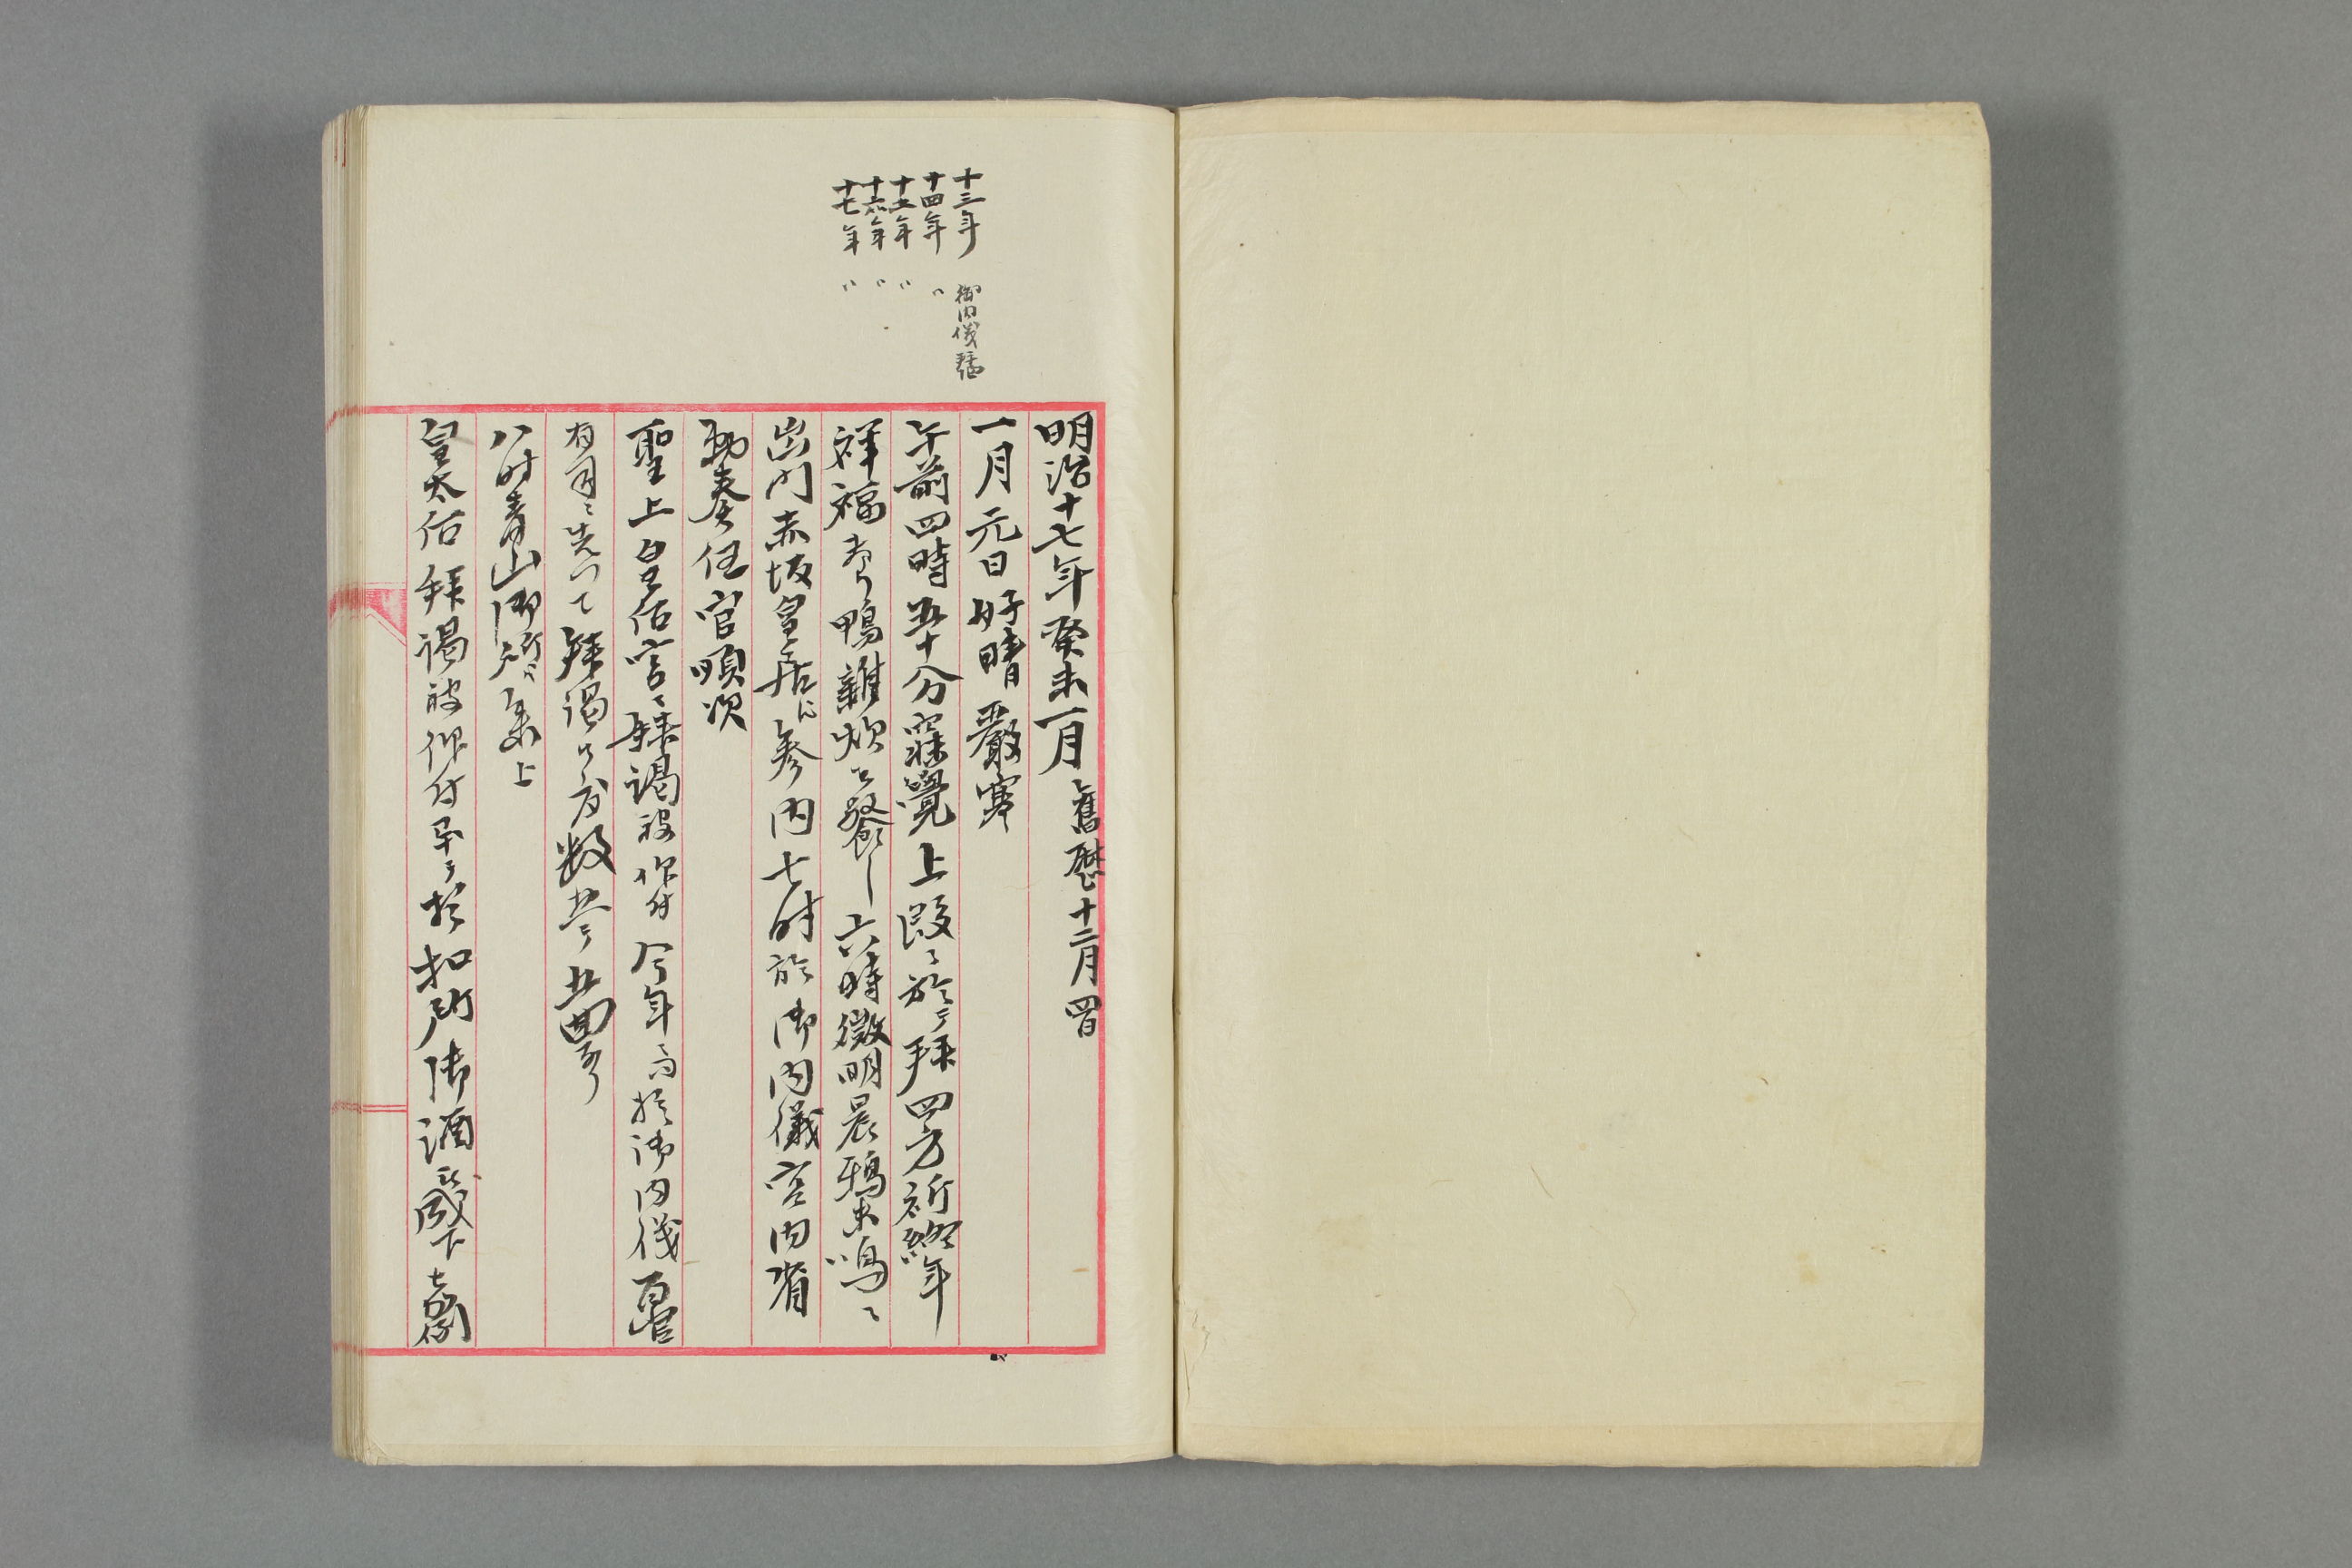 十三年 御内儀拝謁
十四年 〃
十五年 〃
十六年 〃
十七年 〃
明治十七年癸未一月 舊暦十二月四日
一月元日好晴嚴寒
午前四時五十分寤覺上段ニ於テ拝四方祈終年
祥福 鴨雜炊ヲ餐シ六時微明晨鴉未鳴ニ
出門赤坂皇居ニ参内七時於御内儀宮内省
勅奏任官順次
聖上皇后宮ニ拝謁被仰付今年ニ而於御内儀百官
有司ニ先つて拝謁 数
八時青山御所ヘ参上
皇太后拝謁被仰付畢テ於扣所御酒